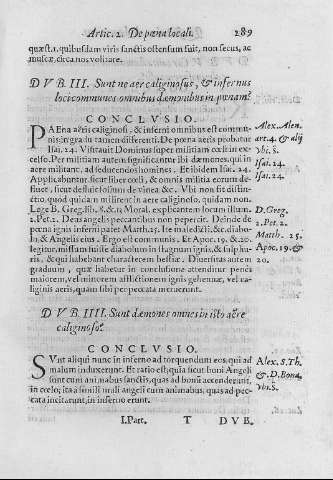 Artic. 2. De pœna locali. 289
quæst. 1. quibusdam viris sanctis ostensum fuit, non secus, ac
muscæ, circa nos volitare.
D V B. III. Sunt ne aer caliginosus, & infernus
loci communes omnibus dæmonibus in pœnam?
CONCLVSIO.
PAEna aëris caliginosi, & inferni omnibus est commu-
nis in gradu tamen differenti. De pœna aeris probatur
Isai. 24. Visitauit Dominus super militiam cœli in ex-
celso. Per militiam autem significantur ibi dæmones, qui in
aere militant, ad seducendos homines. Et ibidem Isai. 24.
Applicabuntur sicut liber cœli, & omnis militia eorum de-
fluet, sicut defluit folium de vinea &c. Vbi non fit distin-
ctio, quod quidam militent in aere caliginoso, quidam non.
Lege B. Greg. lib. 8. &. 13 Moral. explicantem locum illum.
2. Pet. 2. Deus angelis peccantibus non pepercit. Deinde de
pœna ignis inferni patet Matth. 25. Ite maledicti, &c. diabo-
lo, & Angelis eius. Ergo est communis. Et Apoc. 19. & 20.
legitur, missum fuisse diabolum in stagnum ignis, & sulphu-
ris, & qui habebant characterem bestiæ. Diuersitas autem
graduum, quæ habetur in conclusione attenditur penès
maiorem, vel minorem afflictionem ignis gehennæ, vel ca-
liginis aeris, quam sibi per peccata meruerunt.
Alex. Alen.
art. 4. & alij
vbi. S.
Isai. 24.
Isai. 24.
D. Greg.
2. Pet. 2.
Matth. 25.
Apoc. 19. &
20.
D V B. IIII. Sunt dæmones omnes in isto aëre
caliginoso?
CONCLVSIO.
SVnt aliqui nunc in inferno ad torquendum eos, qui ad
malum induxerunt. Et ratio est, quia sicut boni Angeli
sunt cum animabus sanctis, quas ad bonũ accenderunt,
in cœlo; ita similì mali angeli cum animabus, quas ad pec-
cata incitarunt, in inferno erunt.
Alex. S. Th.
& D. Bona.
vbi. S.
I. Part. T D V B.